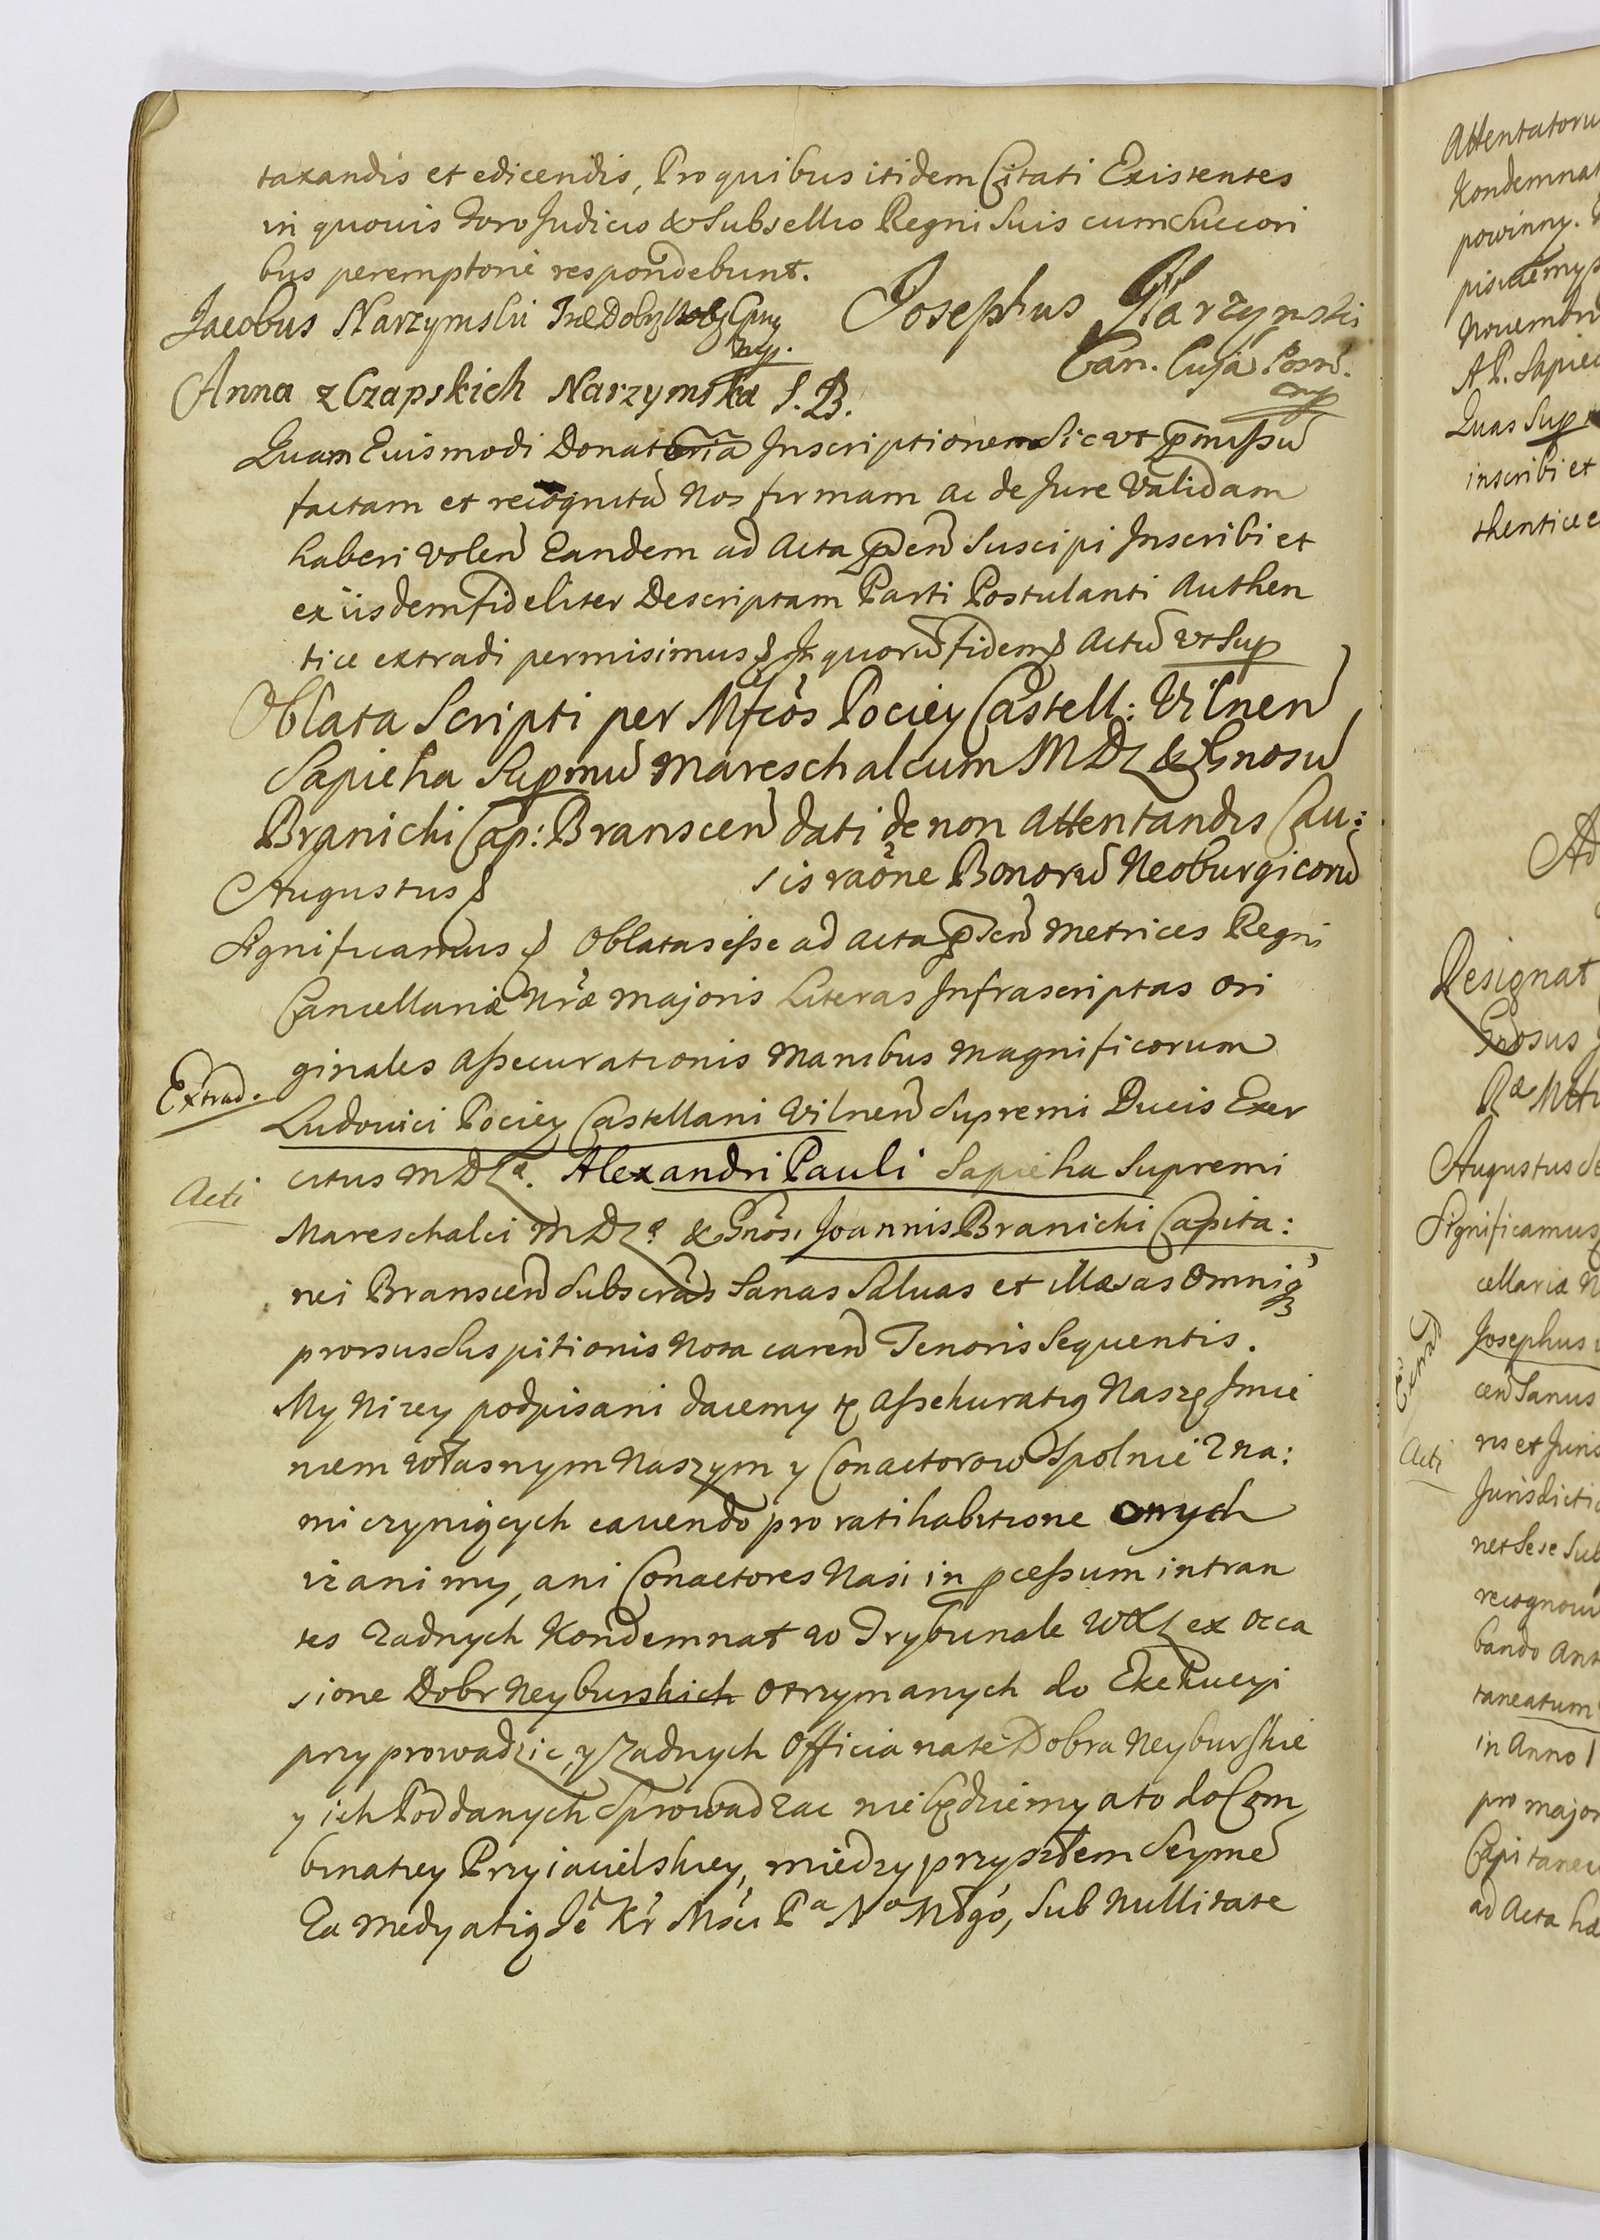 taxandis et edicendis, Pro quibus itidem Citati Existentes
in quovis Foro Judicio & Subsellio Regni Suis cum Succori
bus peremptorie respondebunt.
Jacobus Narzymski
mp.
Josephus Narzymski
Can. Cuja Posn.
mp
Anna z Czapskich Narzymska S. B.
Quam Eiusmodi Donatoria Inscriptionem Sic vt pmissu
factam et recognita Nos firmam ac de Jure Validam
haberi volen Eandem ad Acta pden Suscipi Inscribi et
ex iisdem fideliter Descriptam Parti Postulanti Authen
tice extradi permisimus In quoru fidem Actu vt Sup
Oblata Scripti per Mfcos Pociey Castell: Vilnen
Sapieha Supmu Mareschalcum MDL & Gnosu
Branichi Cap: Branscen dati de non Attentandis Cau:
sis raone Bonoru Neoburgicoru
Augustus
Significamus Oblatas esse ad Acta pden Metrices Regni
Cancellariæ Nræ Majoris Literas Infrascriptas Ori
ginales Assecurationis Manibus Magnificorum
Extrad.
Ludovici Pociey Castellani Vilnen Supremi Ducis Exer
citus MDL. Alexandri Pauli Sapieha Supremi
Acti
Mareschalci MDL & Gnos. Joannis Branichi Capita:
nei Branscen Subscras Sanas Saluas et illæsas Omniq3
prorsus Suspitionis Nota caren Tenoris Sequentis.
My Nizey podpisani daiemy tę Assekuratią Naszę Imie
niem własnym Naszym y Conactorow Spolnie Zna:
mi czyniących cavendo pro ratihabitione onych
iz ani my, ani Conactores Nasi in pcessum intran
tes Zadnych Kondemnat w Trybunale WXL ex occa
sione Dobr Neyburskich otrzymanych do Exekucyi
przyprowadzic, y Zadnych Officia na te Dobra Neyburskie
y ich Poddanych Sprowadzac nie będziemy a to do Com
binatiey Przyiacielskiey, miedzy przyszłem Seyme
Za Medyatią Je Kr Msci Pa No Mgo, Sub Nullitate
Attentatoru
Kondemnat
powinny.
Novembri
A P. Sapie
Quas Sup
inscribi et
thentice e
Ad
Designat
Gnosus
Augustus Se
Significamus
cellariæ N
Extrad
Josephus
cen Sanus
Acti
ris et Juris
Jurisdicti
net Sese Sub
recognov
bando Ant
taneatum
in Anno 1
pro major
Capitaneu
ad Acta hæ